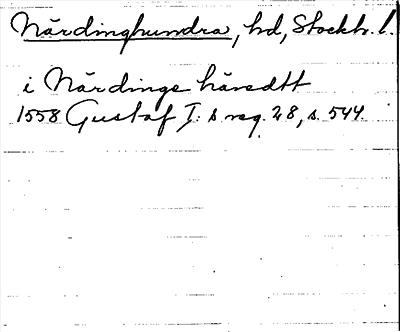 Närdinghundra, hd, Stockh. l.
i Närdinge häredtt
1558 Gustaf I:s reg. 28, s. 544.